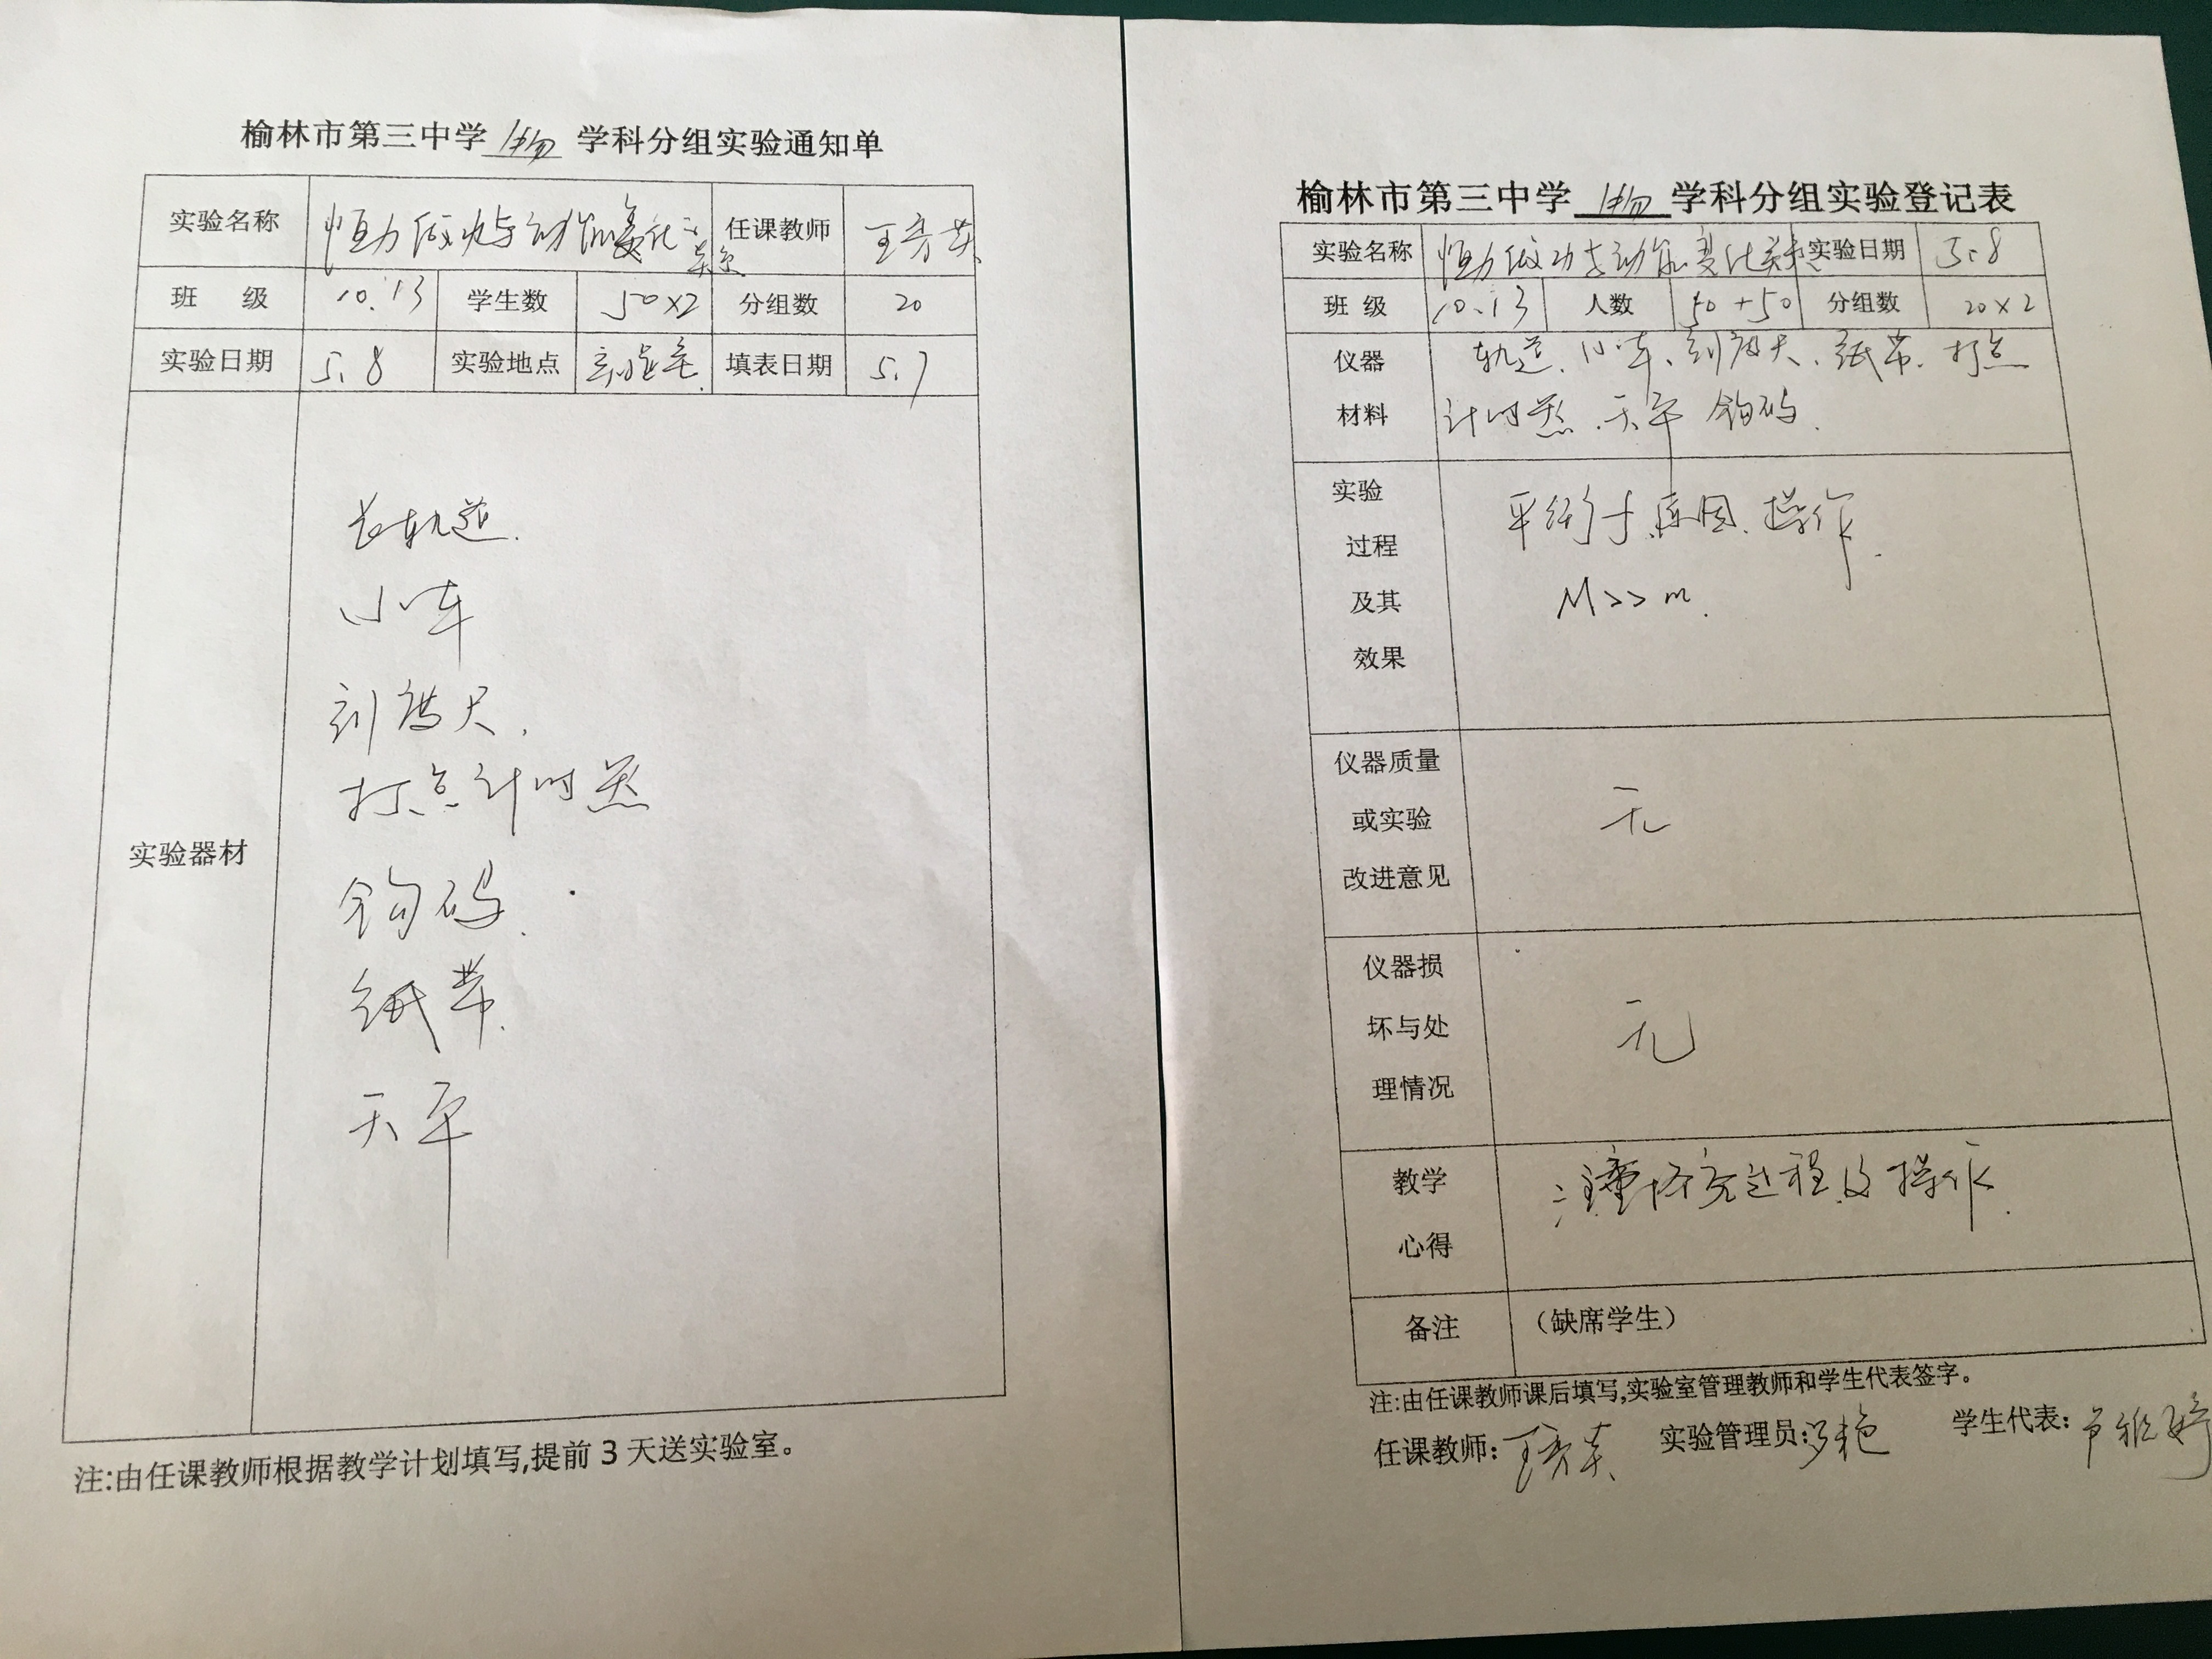 榆林市第三中学 物 学科分组实验通知单
实验名称 恒力做功与动能变化之关系 任课教师 王秀英
班 级 10.13 学生数 50×2 分组数 20
实验日期 5.8 实验地点 实验室. 填表日期 5.7
实验器材
长轨道.
小车
刻度尺.
打点计时器
钩码.
纸带.
天平
注:由任课教师根据教学计划填写,提前3天送实验室。
榆林市第三中学 物 学科分组实验登记表
实验名称 恒力做功与动能变化关系 实验日期 5.8
班 级 10.13 人数 50+50 分组数 20×2
仪器材料
轨道、小车、刻度尺、纸带、打点
计时器.天平 钩码.
实验过程及其效果
平衡f原因、操作.
M>>m.
仪器质量或实验改进意见
无
仪器损坏与处理情况
无
教学心得
注重探究过程及操作.
备注 (缺席学生)
注:由任课教师课后填写,实验室管理教师和学生代表签字。
任课教师: 王秀英 实验管理员: 学生代表: